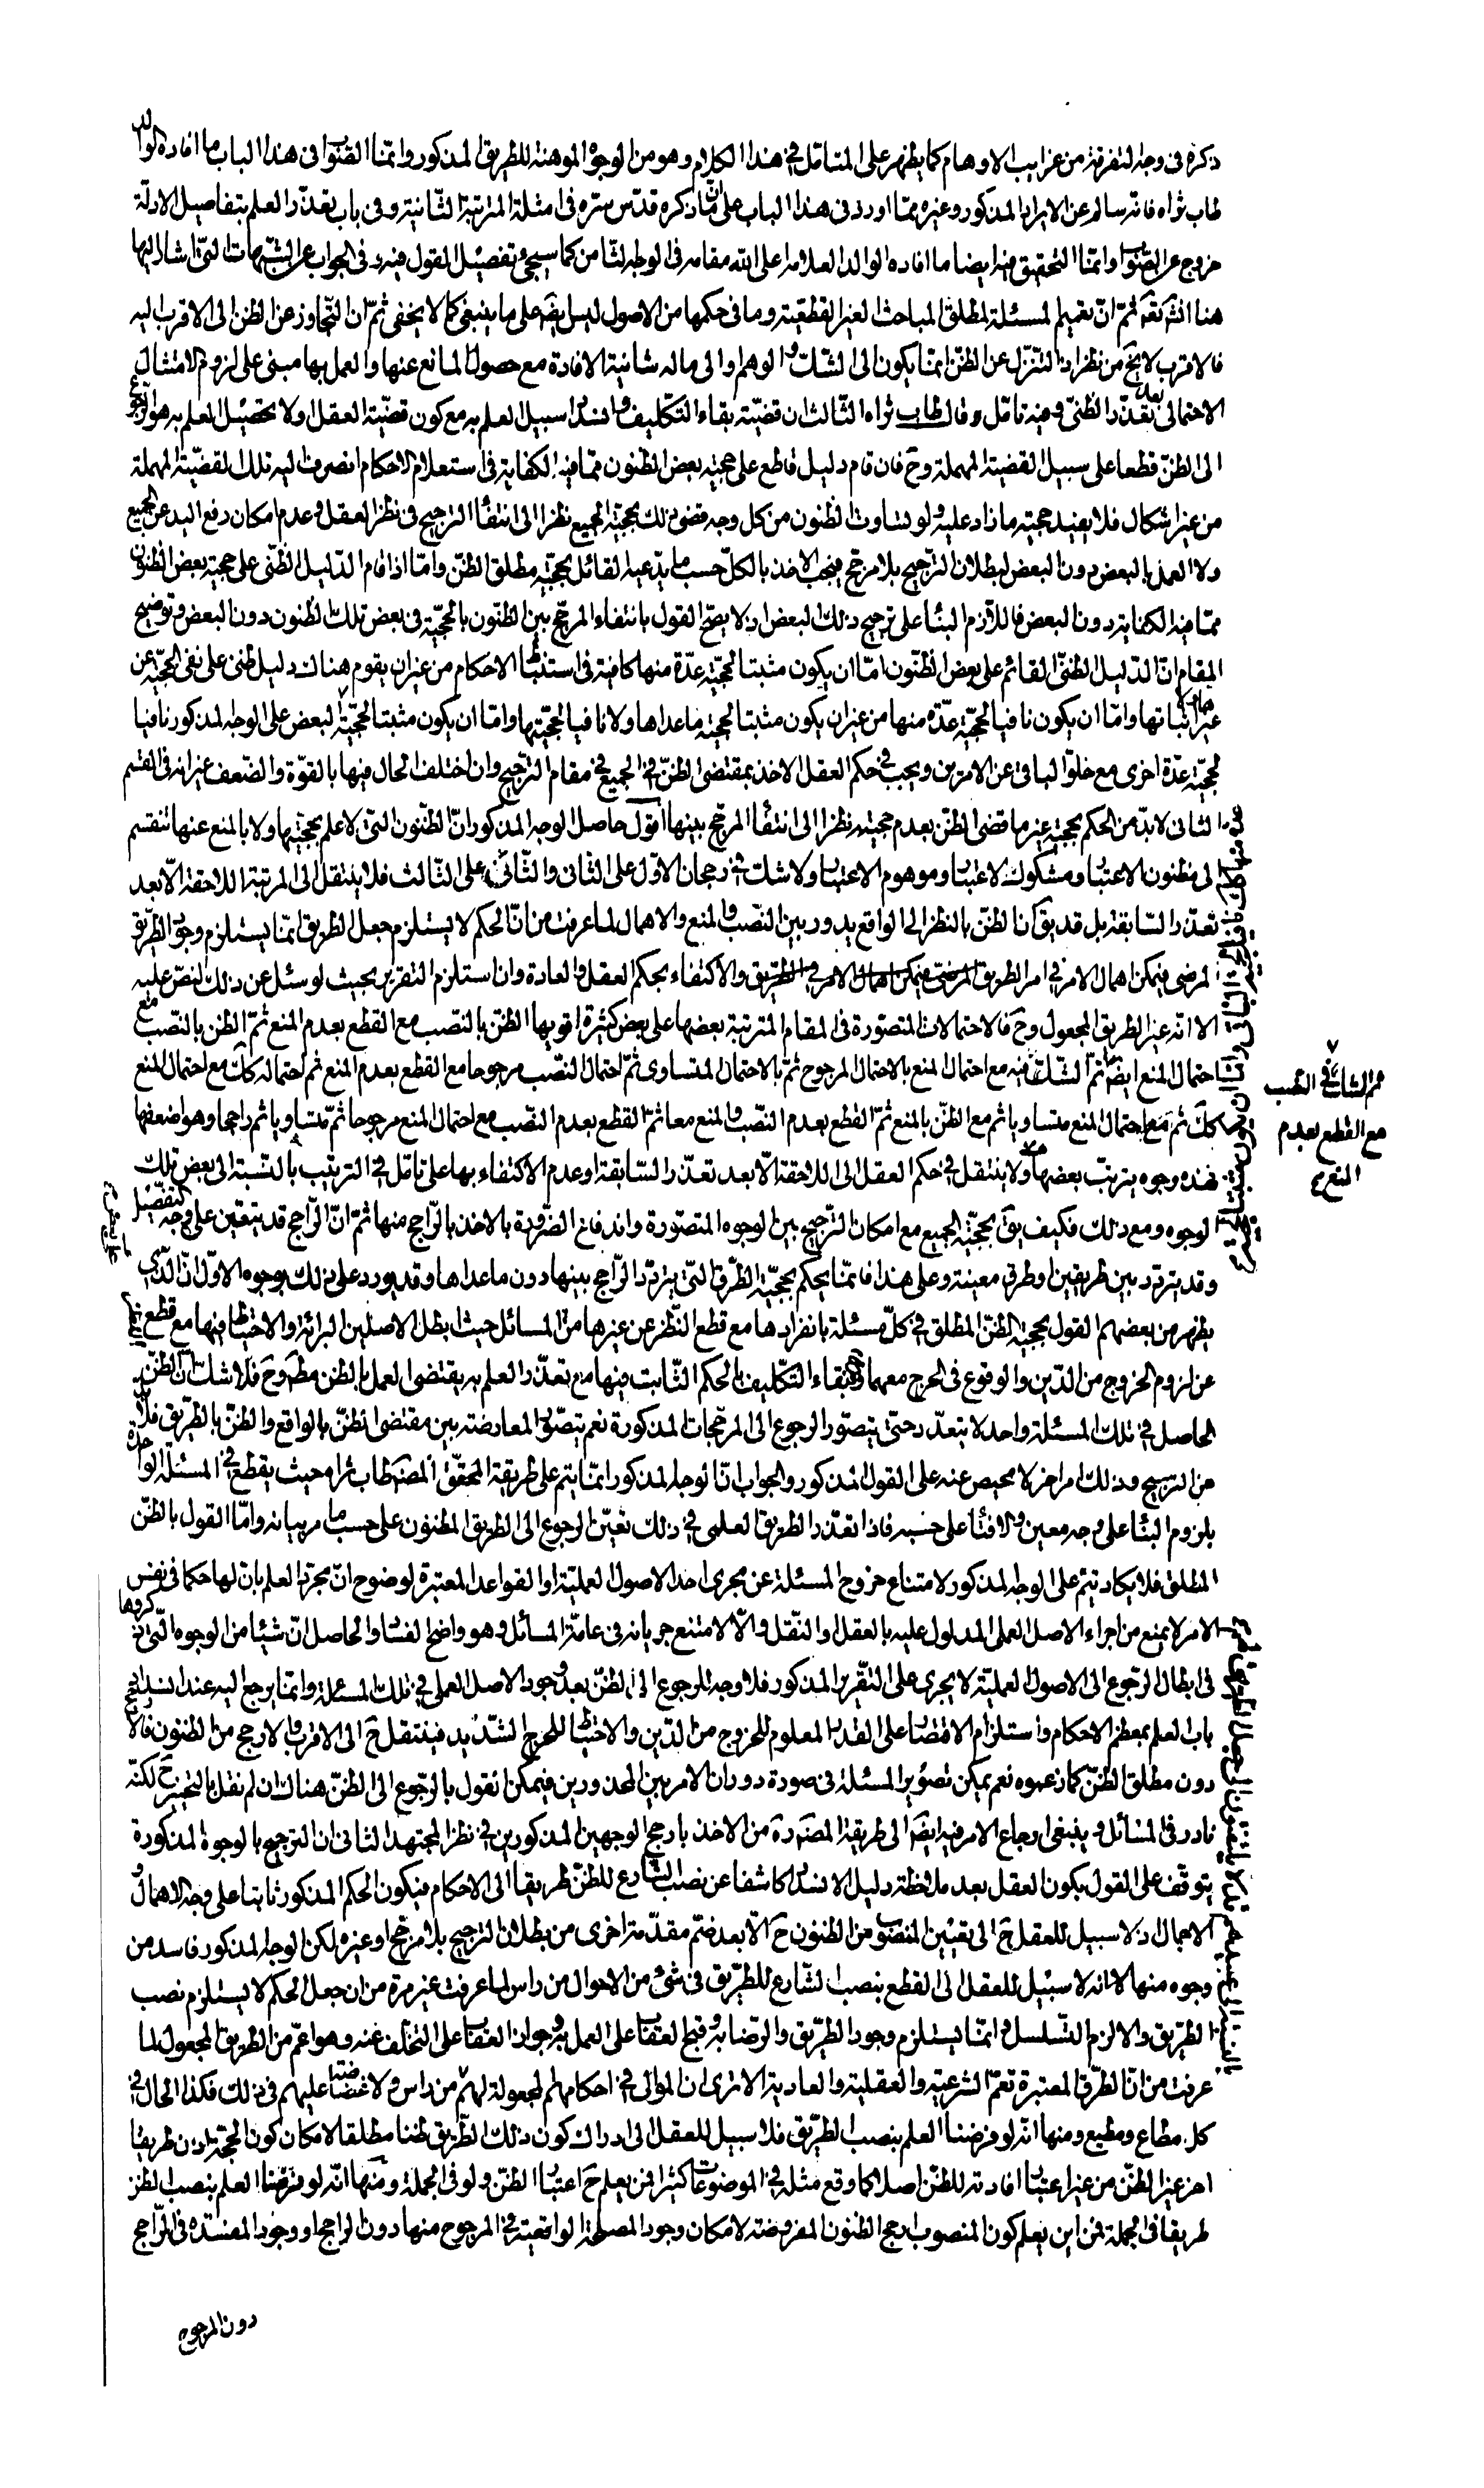 ذكره فى وجه التفرقة من غرايب الاوهام كما يظهر على المتامّل فى هذا الكلام وهو من الوجوه الموهنة للطريق المذكور وانما الصّواب فى هذا الباب ما افاده الوالد
طاب ثراه فانه سالم عن الايراد المذكور وغيره ممّا اورد فى هذا الباب على انّ ما ذكره قدّس سرّه فى امثلة المرتبة الثانية وفى باب تعذّر العلم بتفاصيل الادلّة
خروج عن الصّواب وانما التحقيق فيه ايضا ما افاده الوالد العلامه اعلى الله مقامه فى الوجه الثامن كما سيجئ تفصيل القول فيه وفى الجواب عن الشبهات التى اشار اليها
هنا انش تعَ ثمّ انّ تعميم المسئلة لمطلق المباحث الغير القطعية وما فى حكمها من الاصول ليس ايضَ على ما ينبغى كما لا يخفى ثمّ ان التّجاوز عن الظن الى الاقرب اليه
فالاقرب لا يخ من نظر اذ التنزّل عن الظنّ انما يكون الى الشكّ والوهم او الى ما له شانية الافادة مع حصول المانع عنها والعمل بها مبنى على لزوم الامتثال
الاحتمالى بعد تعذّر الظنّى وفيه تامّل وقال طاب ثراه الثالث ان قضيّة بقاء التكليف وانسداد سبيل العلم به مع كون قضيّة العقل ولا تحصيل العلم به هو الرجوع
الى الظنّ قطعا على سبيل القضية المهملة وحَ فان قام دليل قاطع على حجية بعض الظنون ممّا فيه الكفاية فى استعلام الاحكام انصرفت اليه تلك القضيّة المهملة
من غير اشكال فلا يفيد حجية ما زاد عليه ولو تساوت الظنون من كل وجه قضى ذلك بحجية الجميع نظرا الى انتفاء الترجيح فى نظر العقل وعدم امكان رفع اليد عن الجميع
ولا العمل بالبعض دون البعض لبطلان الترجيح بلا مرجح فيجب الاخذ بالكلّ حسب ما يدّعيه القائل بحجيّة مطلق الظنّ وامّا اذا قام الدّليل الظنّى على حجية بعض الظنون
ممّا فيه الكفاية دون البعض فاللّازم البناء على ترجيح ذلك البعض اذ لا يصحّ القول بانتفاء المرجّح بين الظنّون بالحجيّة فى بعض تلك الظنون دون البعض وتوضيح
المقام انّ الدّليل الظنىّ القائم على بعض الظنّون امّا ان يكون مثبتا لحجيّة عدّة منها كافية فى استنباط الاحكام من غير ان يقوم هناك دليل ظنى على نفى الحجيّة عن
غيرها ولا اثباتها وامّا ان يكون نافيا لحجيّة عدّة منها من غير ان يكون مثبتا لحجية ماعداها ولا نافيا لحجيّتها وامّا ان يكون مثبتا لحجيّة البعض على الوجه المذكور نافيا
لحجيّة عدّة اخرى مع خلوّ الباقى عن الامرين ويجب فى حكم العقل الاخذ بمقتضى الظنّ فى الجميع فى مقام الترجيح وان اختلف الحال فيها بالقوّة والضعف غير انه فى القسم
الثانى لا بدّ من الحكم بحجية غير ما قضى الظنّ بعدم حجيته نظرا الى انتفاء المرجّح بينها اقول حاصل الوجه المذكور انّ الظنّون التى لا علم بحجيّتها ولا بالمنع عنها تنقسم
الى مظنون الاعتبار ومشكوك الاعتبار وموهوم الاعتبار ولا شك فى رجحان الاوّل على الثانى والثانى على الثالث فلا ينتقل الى المرتبة اللاحقة الّا بعد
تعذّر السّابقة بل قد يقَ انّ الظنّ بالنظر الى الواقع يدور بين النصب والمنع والاهمال لما عرفت من انّ الحكم لا يستلزم جعل الطريق انما يستلزم وجود الطّريق
المرضى فيمكن اهمال الامر فى امر الطريق والاكتفاء بحكم العقل والعادة وان استلزم التقرير بحيث لو سئل عن ذلك لنصّ عليه
الّا انّه غير الطريق المجعول وحَ فالاحتمالات المتصوّرة فى المقام المترتبة بعضها على بعض كثيرة اقويها الظنّ بالنصب مع القطع بعدم المنع ثمّ الظن بالنّصب مع
احتمال المنع ايضَ ثمّ الشك فيه مع احتمال المنع بالاحتمال المرجوح ثمّ بالاحتمال المتساوى ثمّ احتمال النصب مرجوحا مع القطع بعدم المنع ثم احتماله ككَ مع احتمال المنع
ككَ ثمّ مع احتمال المنع متساويا ثم مع الظنّ بالمنع ثمّ القطع بعدم النّصب والمنع معا ثمّ القطع بعدم النّصب مع احتمال المنع مرجوحا ثمّ متساويا ثم راجحا وهو اضعفها
فهذه وجوه يترتّب بعضها ولا ينتقل فى حكم العقل الى اللاحقة الّا بعد تعذّر السّابقة او عدم الاكتفاء بها على تامّل فى الترتيب بالنسبة الى بعض تلك
الوجوه ومع ذلك فكيف يقَ بحجيّة الجميع مع امكان الترجيح بين الوجوه المتصوّرة واندفاع الضّرورة بالاخذ بالرّاجح منها ثمّ انّ الرّاجح قد يتعيّن على وجه التفصيل
وقد يتردّد بين طريقين او طرق معينة وعلى هذا فانّما يحكم بحجيّة الطّرق التى يتردّد الرّاجح بينها دون ماعداها وقد يورد على ذلك بوجوه الاوّل انّ الّذى
يظهر من بعضهم القول بحجية الظنّ المطلق فى كلّ مسئلة بانفرادها مع قطع النّظر عن غيرها من المسائل حيث ابطل الاصلين البرائة والاحتياط فيها مع قطع النظر
عن لزوم الخروج من الدّين والوقوع فى الحرج معهما بقاء التكليف بالحكم الثّابت فيها مع تعذّر العلم به يقتضى العمل بالظن مطَ وحَ فلا شك انّ الظنّ
الحاصل فى تلك المسئلة واحد لا يتعدّد حتىّ يتصوّر الرجوع الى المرجّحات المذكورة نعم يتصوّر المعارضة بين مقتضى الظنّ بالواقع والظنّ بالطّريق فلا بدّ
من الترجيح وذلك امر اخر لا محيص عنه على القول المذكور والجواب انّ الوجه المذكور انما يتم على طريقة المحقق المصَ طاب ثراه حيث يقطع فى المسئلة الواحدة
بلزوم البناء على وجه معين والافتاء على حسبه فاذا تعذّر الطريق العلمى فى ذلك تعيّن الرجوع الى الطريق المظنون على حسب ما مر بيانه وامّا القول بالظنّ
المطلق فلا يكاد يتم على الوجه المذكور لامتناع خروج المسئلة عن مجرى احد الاصول العمليّة او القواعد المعتبرة لوضوح انّ مجرّد العلم بان لها حكما فى نفس
الامر لا يمنع من اجراء الاصل العملى المدلول عليه بالعقل والنّقل والّا لامتنع جريانه فى عامّة المسائل وهو واضح الفساد والحاصل انّ شيئا من الوجوه الّتى ذكروها
فى ابطال الرّجوع الى الاصول العمليّة لا يجرى على التّقرير المذكور فلا وجه للرجوع الى الظنّ بعد وجود الاصل العملى فى تلك المسئلة وانّما يرجع اليه عند انسداد
باب العلم بمعظم الاحكام واستلزام الاقتصار على القدر المعلوم للخروج من الدّين والاحتياط للحرج الشّديد فينتقل حَ الى الاقرب والارجح من الظنون فالارجح
دون مطلق الظنّ كما زعموه نعم يمكن تصوير المسئلة فى صورة دوران الامر بين المحذورين فيمكن القول بالرّجوع الى الظنّ هناك ان لم نقل بالتخيير حَ لكنّه
نادر فى المسائل وينبغى ارجاع الامر فيه ايضَ الى طريقة المصَ رَه من الاخذ بارجح الوجهين المذكورين فى نظر المجتهد الثانى ان الترجيح بالوجوه المذكورة
يتوقّف على القول بكون العقل بعد ملاحظة دليل الانسداد كاشفا عن نصب الشارع للظنّ طريقا الى الاحكام فيكون الحكم المذكور ثابتا على وجه الاهمال و
الاجمال اذ لا سبيل للعقل حَ الى تعيين المنصوب من الظنون حَ الّا بعد ضمّ مقدّمة اخرى من بطلان الترجيح بلا مرجّح او غيره لكن الوجه المذكور فاسد من
وجوه منها الا انه لا سبيل للعقل الى القطع بنصب الشّارع للطّريق فى شئ من الاحوال من راس لما عرفت غير مرة من ان جعل الحكم لا يستلزم نصب
الطّريق والا لزم التّسلسل وانّما يستلزم وجود الطّريق والرّضا به وقبح العقاب على العمل به وجواز العقاب على التخلّف عنه وهو اعمّ من الطريق المجعول لما
عرفت من انّ الطّرق المعتبرة تعمّ الشرعيّة والعقليّة والعاديّة الا ترى ان الموالى فى احكامهم المجعولة لهم من راس ولا غضاضة عليهم فى ذلك فكذا الحال فى
كل مطاع ومطيع ومنها انّه لو فرضنا العلم بنصب الطّريق فلا سبيل للعقل الى ادراك كون ذلك الطّريق ظنا مطلقا لامكان كون الحجّة اذن طريقا
اخر غير الظنّ من غير اعتبار افادته للظنّ اصلا كما وقع مثله فى الموضوعات كثيرا فمن يعلم حَ اعتبار الظنّ ولو فى الجملة ومنها انّه لو فرضنا العلم بنصب الظن
طريقا فى الجملة فمن اين يعلم كون المنصوب ارجح الظنون المفروضة لامكان وجود المصلحة الواقعية فى المرجوح منها دون الراجح او وجود المفسدة فى الرّاجح
دون المرجوح
ثم الشك فى النصب
مع القطع بعدم
المنع